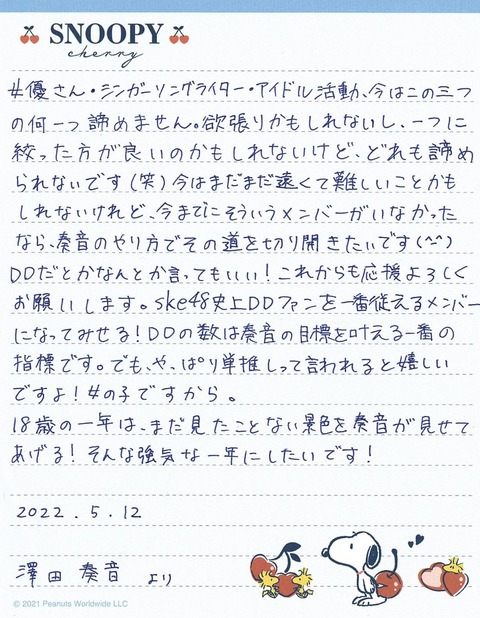 SNOOPY
cherry
女優さん・シンガーソングライター・アイドル活動、今はこの三つ
の何一つ諦めません。欲張りかもしれないし、一つに
絞った方が良いのかもしれないけど、どれも諦め
られないです(笑)今はまだまだ遠くて難しいことかも
しれないけれど、今までにそういうメンバーがいなかった
なら、奏音のやり方でその道を切り開きたいです(^^)
DDだとかなんとか言ってもいい!これからも応援よろしく
お願いします。ske48史上DDファンを一番従えるメンバー
になってみせる!DDの数は奏音の目標を叶える一番の
指標です。でも、や、ぱり単推しって言われると嬉しい
ですよ!女の子ですから。
18歳の一年は、まだ見たことない景色を奏音が見せて
あげる!そんな強気な一年にしたいです!
2022.5.12
澤田 奏音 より
© 2021 Peanuts Worldwide LLC